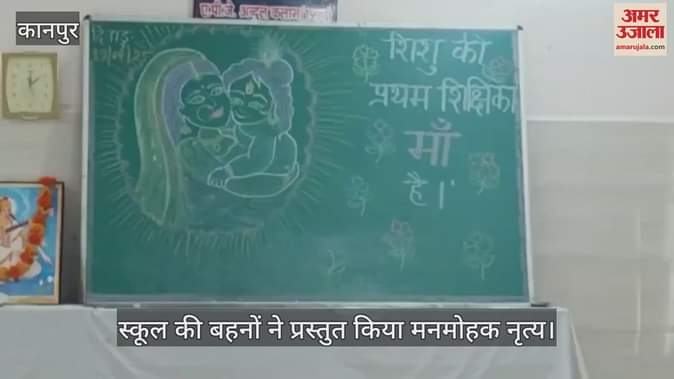 कानपुर
अमर
उजाला
amarujala.com
ए.पी.जे. अब्दुल कलाम
शिशु की
प्रथम शिक्षिका
माँ
है।
स्कूल की बहनों ने प्रस्तुत किया मनमोहक नृत्य।